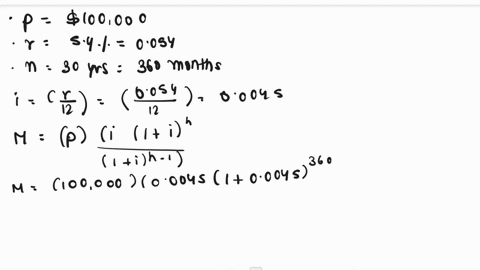 · P = $100,000
· r = 5.4 % = 0.054
· n = 30 yrs = 360 months
i = (r/12) = (0.054/12) = 0.0045
M = (P) (i (1+i)^n / (1+i)^n-1)
M = (100,000) (0.0045 (1+0.0045)^360